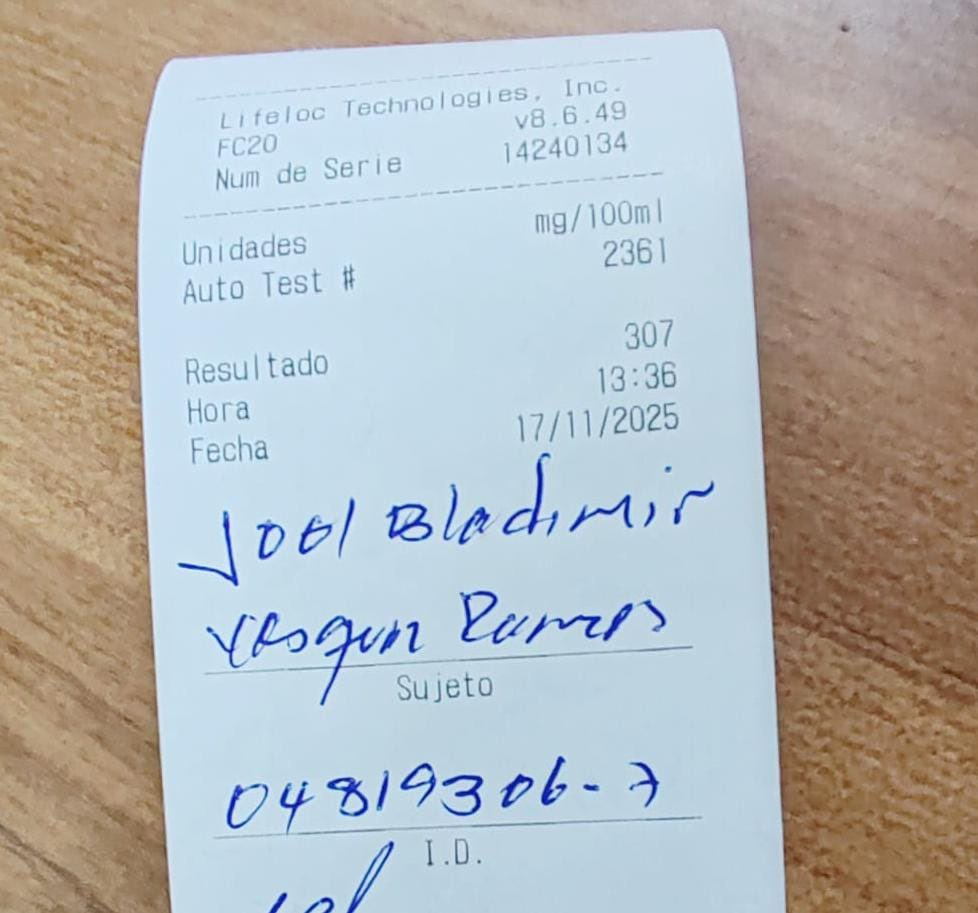 Lifeloc Technologies, Inc.
FC20 v8.6.49
Num de Serie 14240134
Unidades mg/100ml
Auto Test # 2361
Resultado 307
Hora 13:36
Fecha 17/11/2025
Joel Bladimir
Sujeto
04819306-7
I.D.